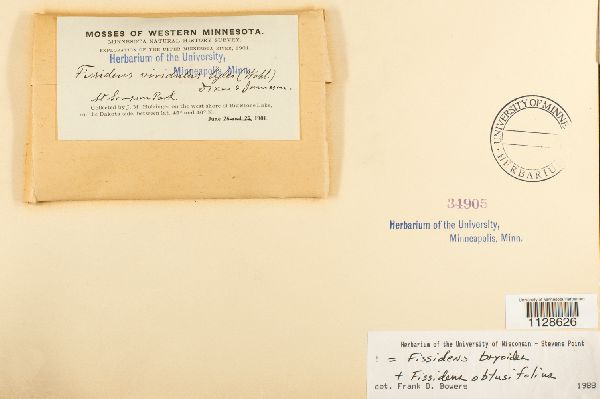 MOSSES OF WESTERN MINNESOTA.
MINNESOTA NATURAL HISTORY SURVEY.
EXPLORATION OF THE UPPER MINNESOTA RIVER, 1901.
Herbarium of the University,
Minneapolis, Minn.
Fissidens
Dixon & Jameson.
At Simpson Park
Collected by J. M. Holzinger on the west shore of Bigstone Lake,
on the Dakota side, between lat. 45° and 46° N.
June 24 and 25, 1901.
UNIVERSITY OF MINNE
HERBARIUM
34905
Herbarium of the University,
Minneapolis, Minn.
University of Minnesota Herbarium
1128626
Herbarium of the University of Wisconsin - Stevens Point
! = Fissidens bryoides
+ Fissidens obtusifolius
det. Frank D. Bowers 1988